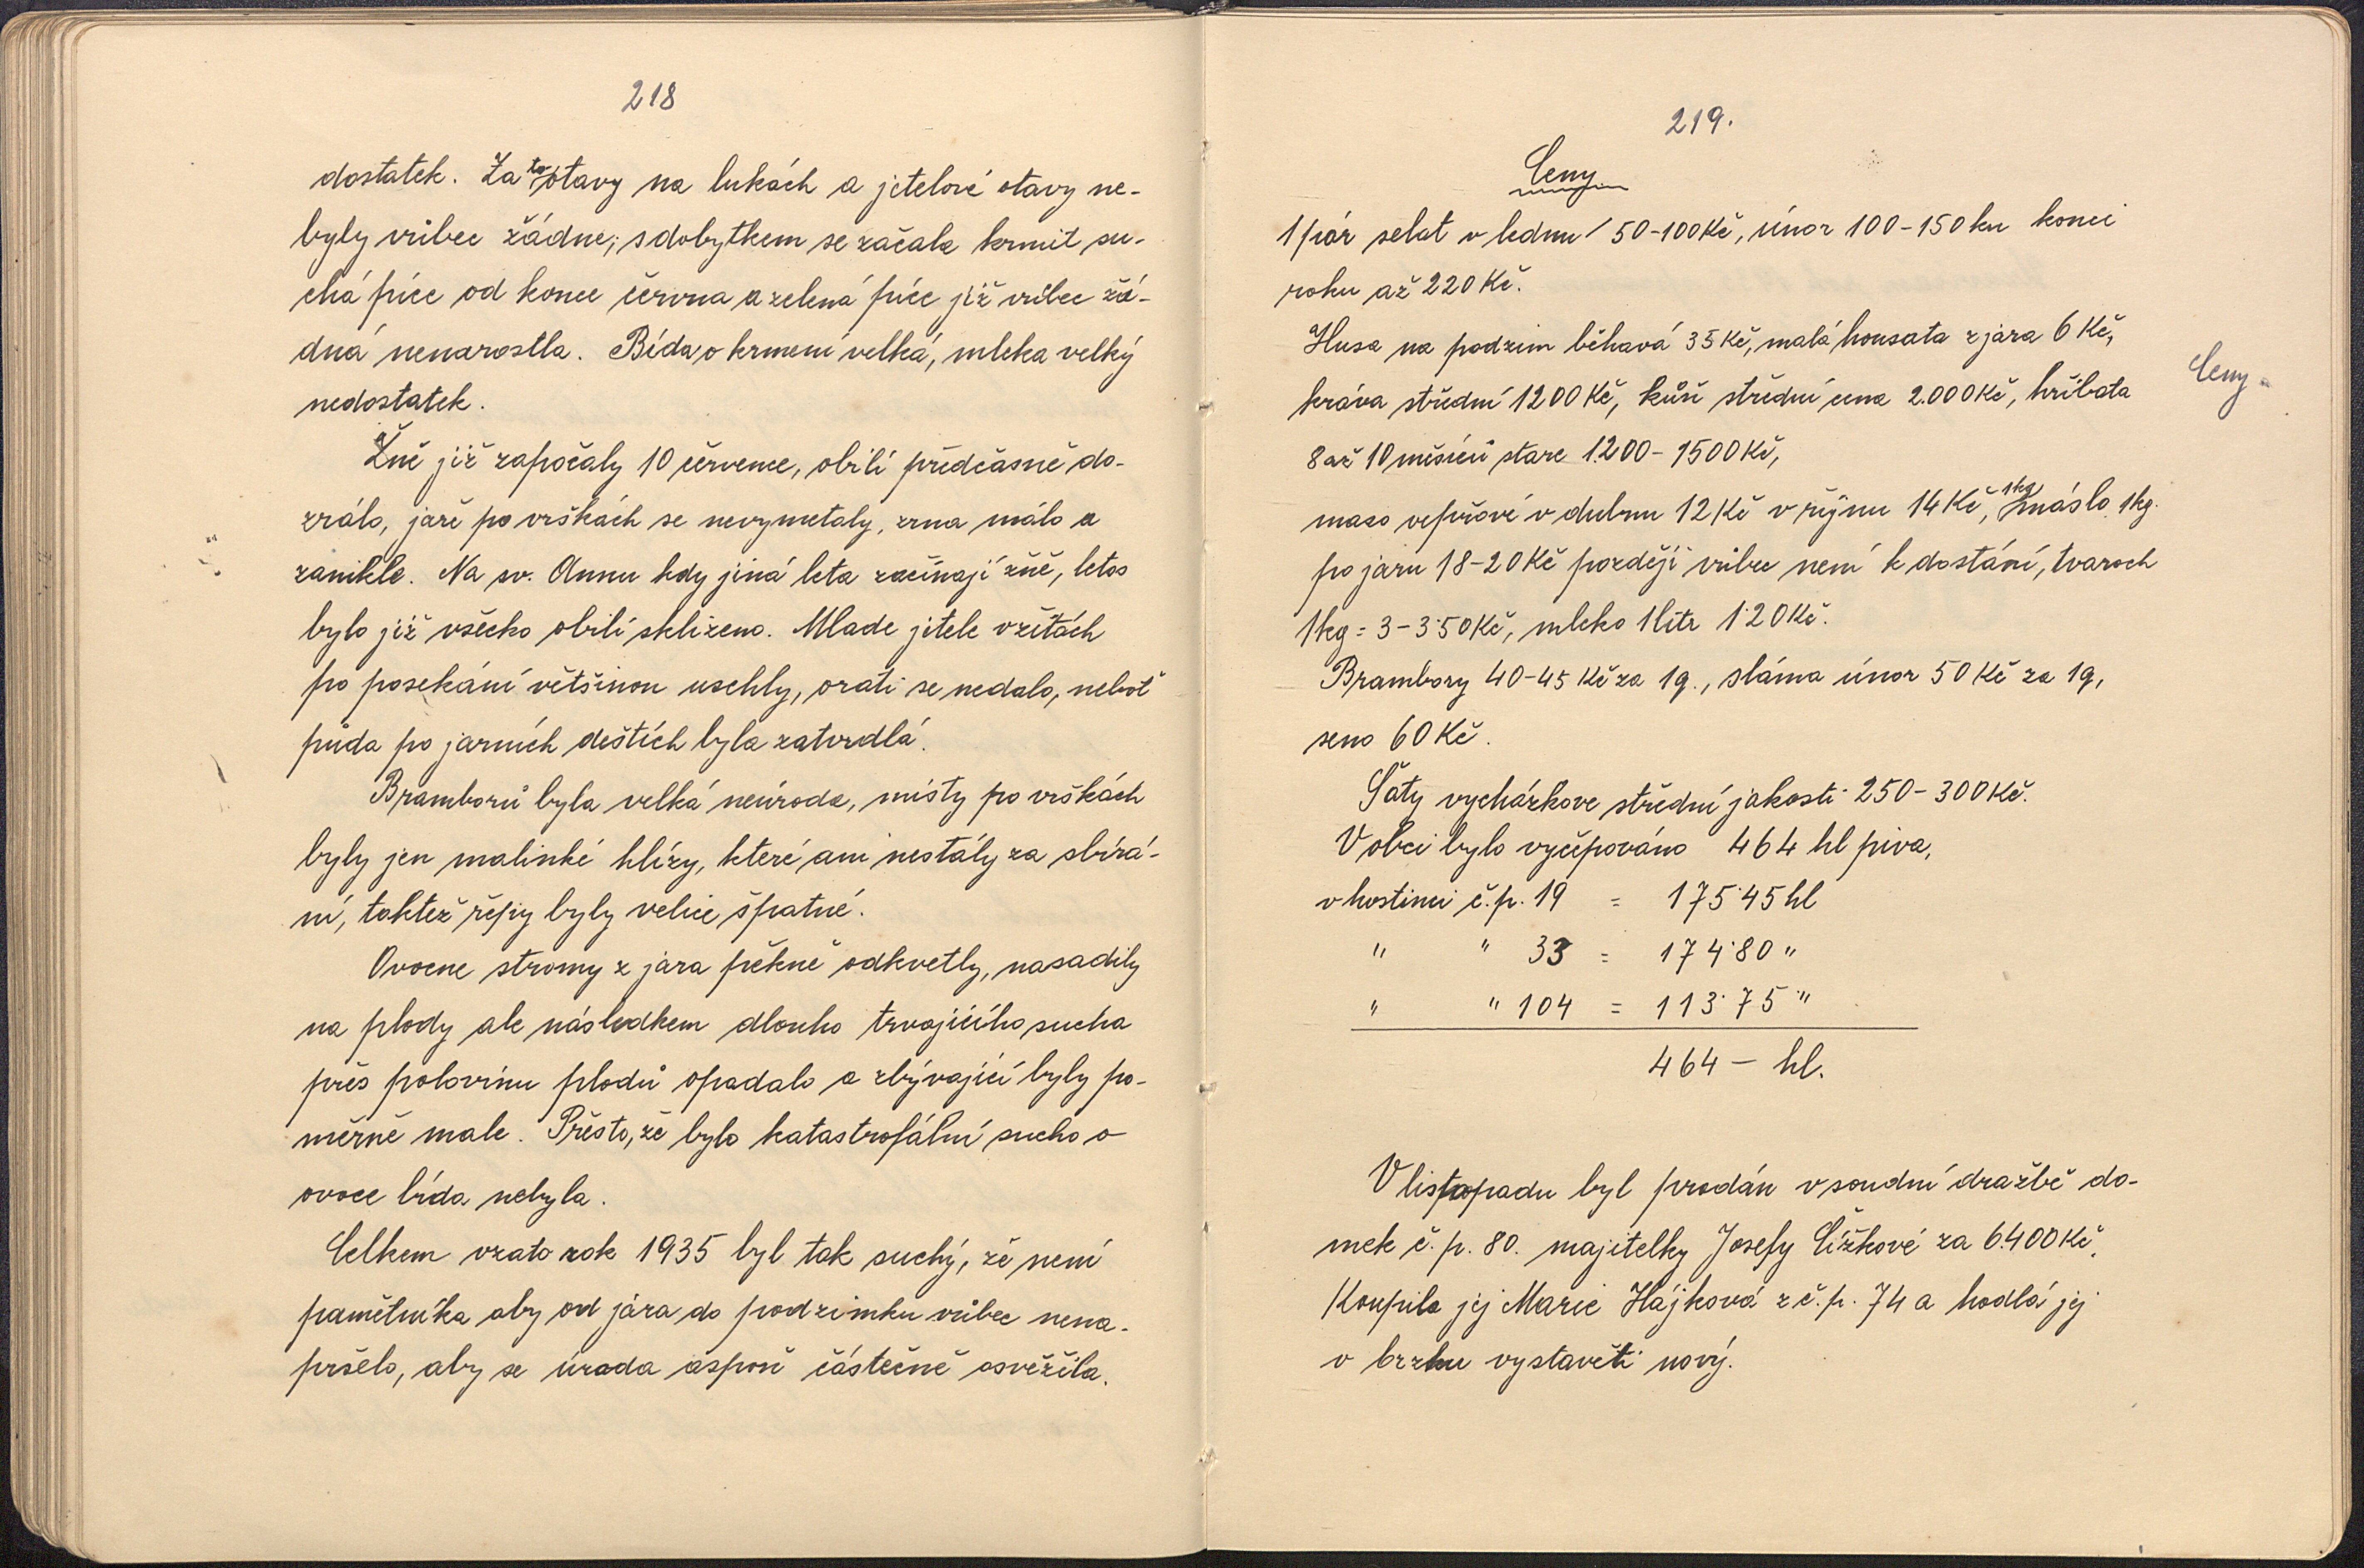 218
dostatek. Za to otavy na lukách a jetelové otavy ne-
byly vůbec žádne; s dobytkem se začala krmit su-
chá píce od konce června a zelená píce již vůbec žá-
dná nenarostla. Bída o krmení velká, mleka velký
nedostatek.
Žně již započaly 10 července, obilí předčasně do-
zrálo, jaře po vrškách se nevymetaly, zrna málo a
zanikle. Na sv. Annu kdy jiná leta začínají žně, letos
bylo již všecko obilí sklizeno. Mlade jetele v žitách
po posekání většinou uschly, orati se nedalo, neboť
půda po jarních deštích byla zatvrdlá.
Bramborů byla velká neúroda, místy po vrškách
byly jen malinké hlízy, které ani nestály za sbírá-
ní, taktéž řepy byly velice špatné.
Ovocne stromy z jara pěkně odkvetly, nasadily
na plody ale následkem dlouho trvajícího sucha
přes polovinu plodů opadalo a zbývající byly po-
měrně male. Přesto, že bylo katastrofální sucho o
ovoce bída nebyla.
Celkem vzato rok 1935 byl tak suchý, že není
pamětníka aby od jára do podzimku vůbec nena-
pršelo, aby se úroda aspoň částečně osvěžila.
219.
Ceny
1 pár selat v lednu 50-100 Kč, únor 100-150 ku konci
roku až 220 Kč.
Husa na podzim běhavá 35 Kč, malá housata z jára 6 Kč,
kráva střední 1200 Kč, kůň střední cena 2.000 Kč, hříbata
Ceny
8 až 10 měsíců stare 1200-1500 Kč,
maso vepřové v dubnu 12 Kč v říjnu 14 Kč, 1kg máslo 1kg.
po jaru 18-20 Kč později vůbec není k dostání, tvaroch
1kg = 3-3·50 Kč, mleko 1 litr 1·20 Kč.
Brambory 40-45 Kč za 1q., sláma únor 50 Kč za 1q,
seno 60 Kč.
Šaty vycházkove střední jakosti 250-300 Kč.
V obci bylo vyčepováno 464 hl piva,
v hostinci č.p. 19 = 175·45 hl
" " 33 = 174·80 "
" " 104 = 113·75 "
464 — hl.
V listopadu byl prodán v soudní dražbě do-
mek č. p. 80. majitelky Josefy Čížkové za 6.400 Kč.
Koupila jej Marie Hájková z č. p. 74 a hodlá jej
v brzku vystavěti nový.